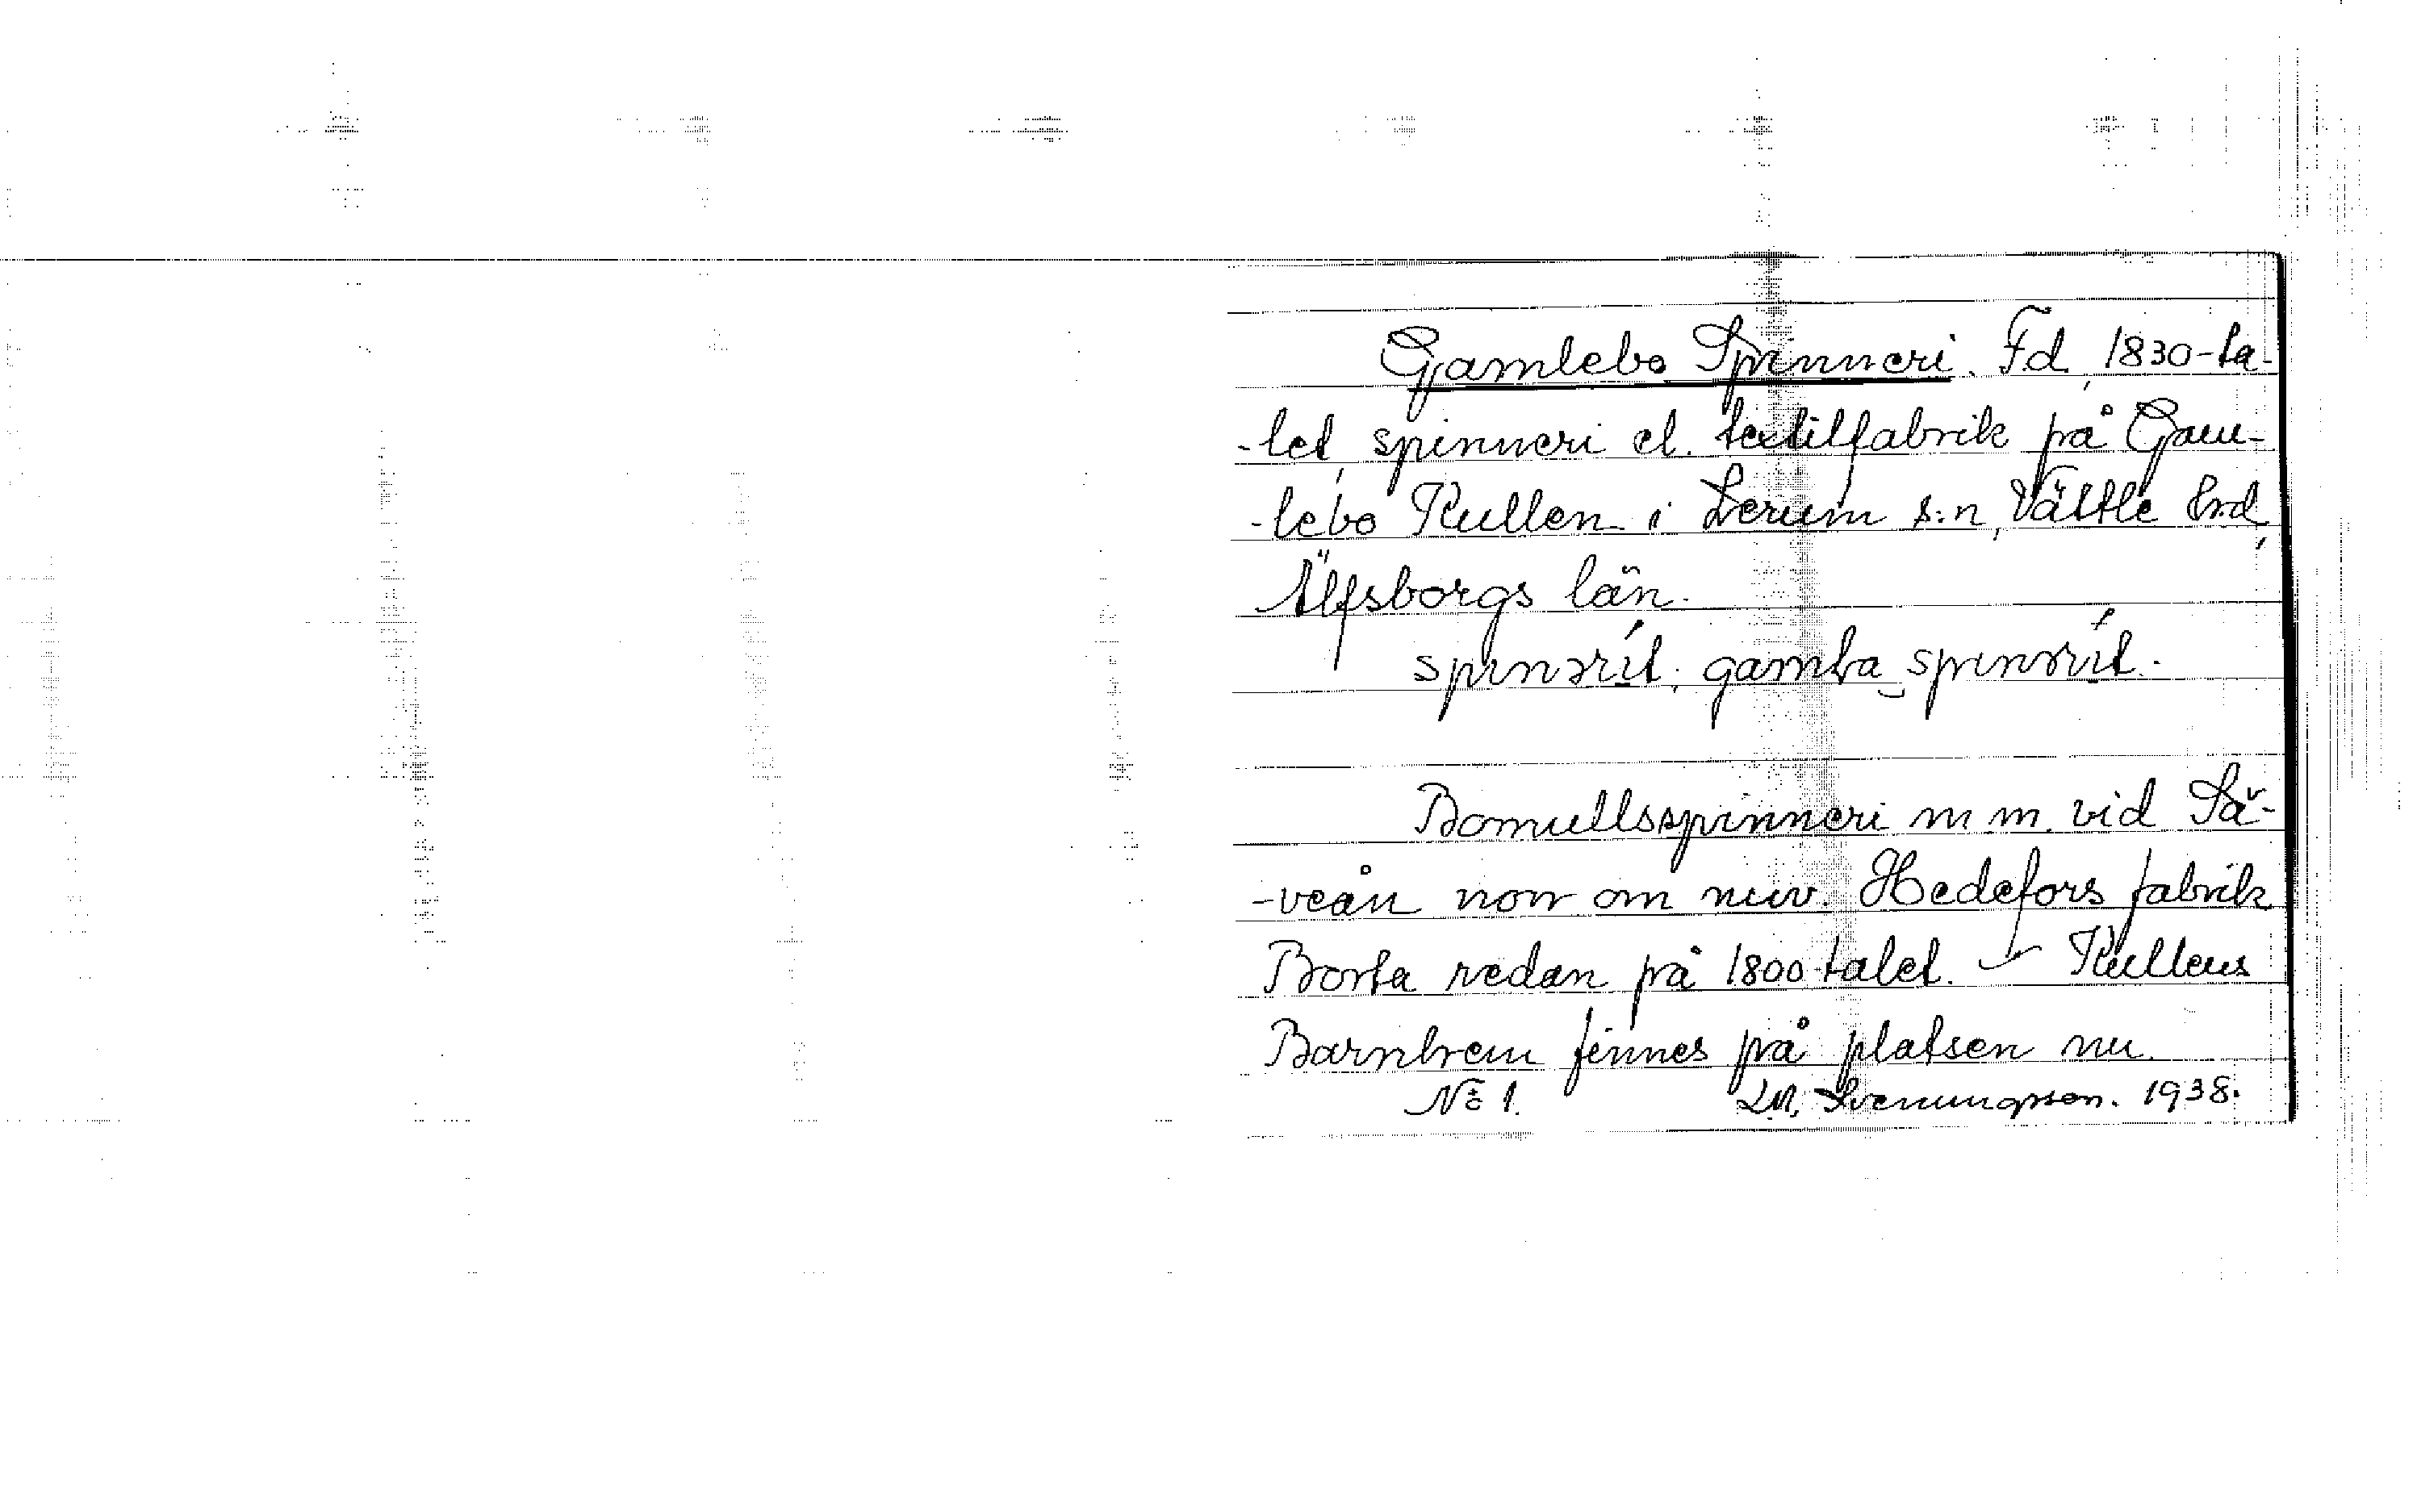 Gamlebo Spinneri. Fd, 1830-ta-
-let, spinneri el. textilfabrik på Gam-
-lebo Kullen i Lerum s:n, Vättle hrd,
Älfsborgs län.
spinərít; gamba spinərít.
Bomullsspinneri m m. vid Sä-
-veån norr om nuv. Hedefors fabrik
Borta redan på 1800-talet. Kullens
Barnhem finnes på platsen nu.
No 1. Svenungsson. 1938.